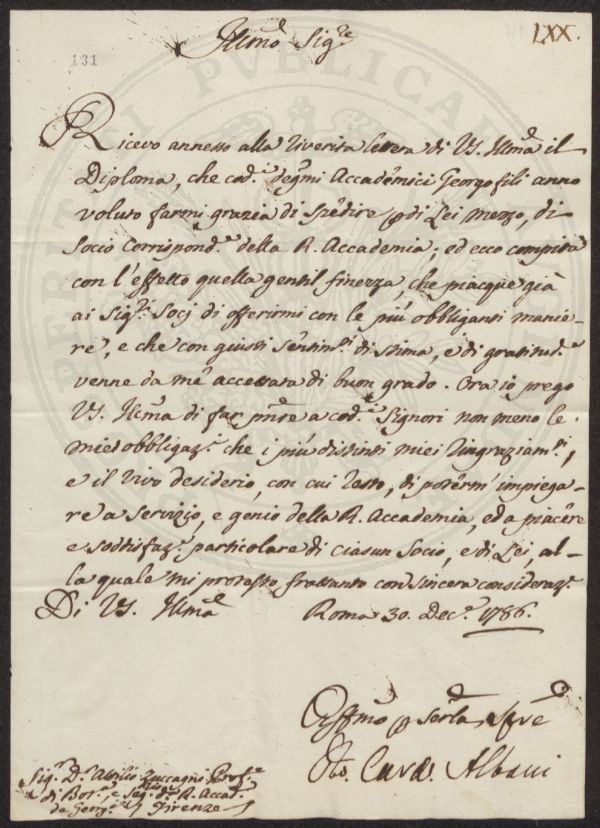 LXX.
131
Illmo Sigre
Ricevo annesso alla riverita lettera di VS. Illma il
Diploma, che cod.i degmi Accademici Georgofili anno
voluto farmi grazia di spedire p di Lei mezzo, di
Socio Corrispond.e della R. Accademia; ed ecco compita
con l'effetto quella gentil finezza, che piacque già
ai Sigri Socj di offerirmi con le più obbliganti manie-
re, e che con giusti sentimti di stima, e di gratitud.e
venne da me accettata di buon grado. Ora io prego
VS. Illma di far pnte a cod.i Signori non meno le
mie obbligaz.i che i più distinti miei ringraziamti,
e il vivo desiderio, con cui resto, di potermi impiega-
re a servizio, e genio della R. Accademia, ed a piacere
e soddisfaz.e particolare di ciasun Socio, e di Lei, al-
la quale mi protesto frattanto con sincera consideraz.e
Di VS. Illma Roma 30. Dec.e 1786.
Affmo p serla sempre
Card. Albani
Sigr Dr Attilio Zuccagni Profre
di Bot.a e Segr. dla R. Accad.a
de Georgli Firenze